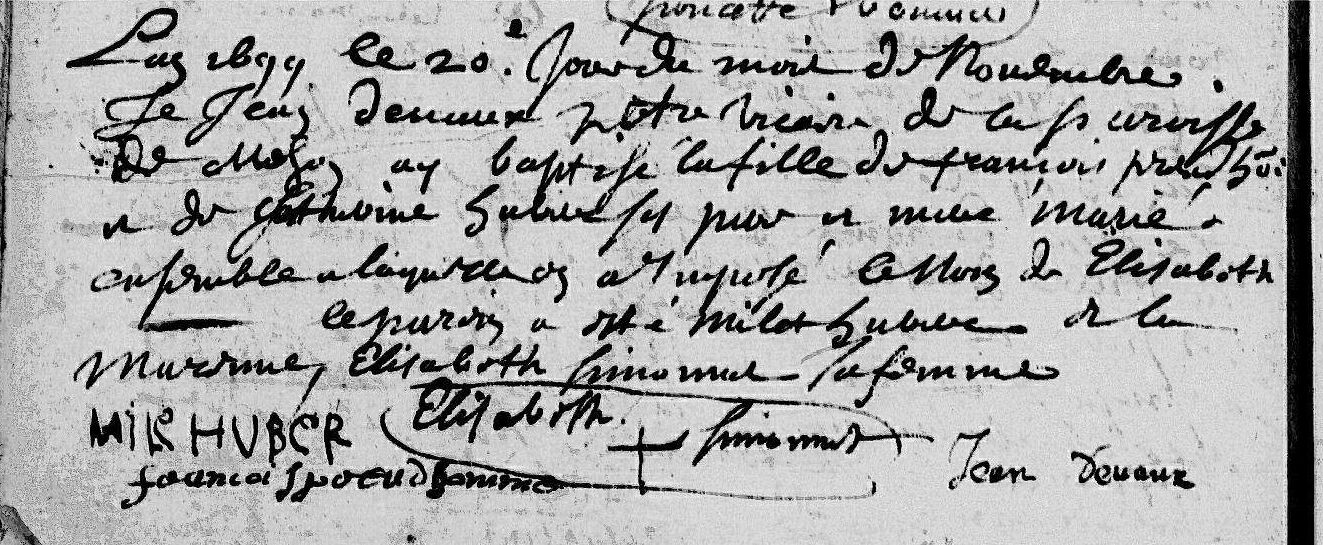 L'an 1699 le 20e Jour du mois de Novembre.
Je Jean Devaux prêtre vicaire de la paroisse
de ay baptisé la fille de françois preudhom̄
et de Catherine huber ses pere et mere marié
ensemble a laquelle on a Imposé le Nom de Elisabeth
le parein a esté huber et la
Mareine Elisabeth Simonnet sa femme
HUBER Elisabeth Simonnet
francois preudhomme Jean Devaux